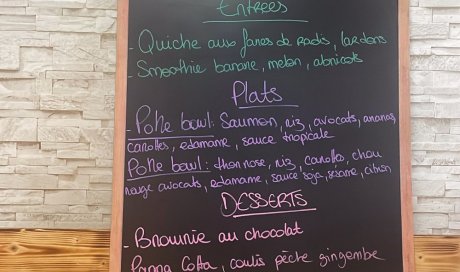 Entrées
- Quiche aux fanes de radis, lardons
- Smoothie banane, melon, abricots
Plats
- Poke bowl : Saumon, riz, avocats, ananas,
carottes, edamame, sauce tropicale
- Poke bowl : thon rose, riz, carottes, chou
rouge avocats, edamame, sauce soja, sesame, citron
DESSERTS
- Brownie au chocolat
Panna Cotta, coulis pêche gingembre